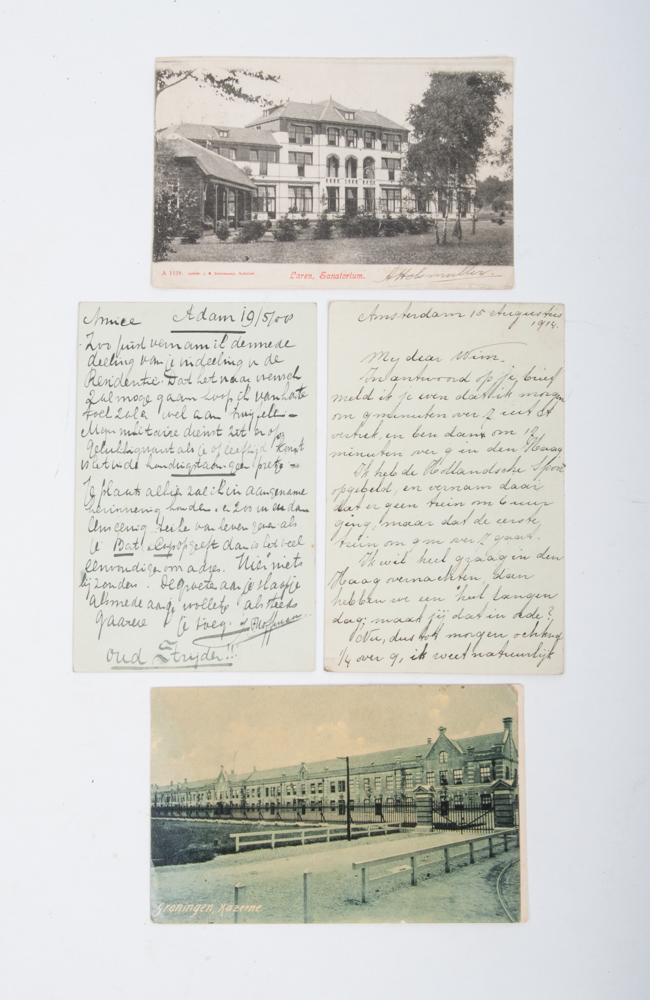 A 1128.
Laren, Sanatorium.
Amice Adam 19/5/00
Zoo juist vernam ik de mede
deeling van je indeeling v de
Residentie. Dat het naar wensch
zal moge gaan hoop ik van harte
wel aan
Mijn militaire dienst zet er op
gelukkig want als je op leeftijd komt
is het in de geen pretje =
Je plaats alhier zal ik in aangename
herinnering houden. en
eenig van leven geven als
je Bat. opgeeft dan is het veel
eenvoudiger om adres. Hier niets
bijzonders. De groeten aan je slaapje
alsmede aan je als steeds
gaarne je toeg.
Oud Strijder!!!
Amsterdam 15 Augustus
1914.
My dear Wim.
In antwoord op je brief
meld ik je even dat ik morgen
om 9 minuten over 7 uit A
vertrek, en ben dan om 12
minuten over 9 in den Haag
Ik heb de Hollandsche Spoor
opgebeld, en vernam daar
dat er geen trein om 6 uur
ging, maar dat de eerste
trein om 9 m over 7 gaat.
Ik wil heel graag in den
Haag overnachten, dan
hebben we een heel langen
dag, maak jij dat in orde?
Nu, dus tot morgen ochtend
1/4 over 9, ik weet natuurlijk
Groningen, Kazerne